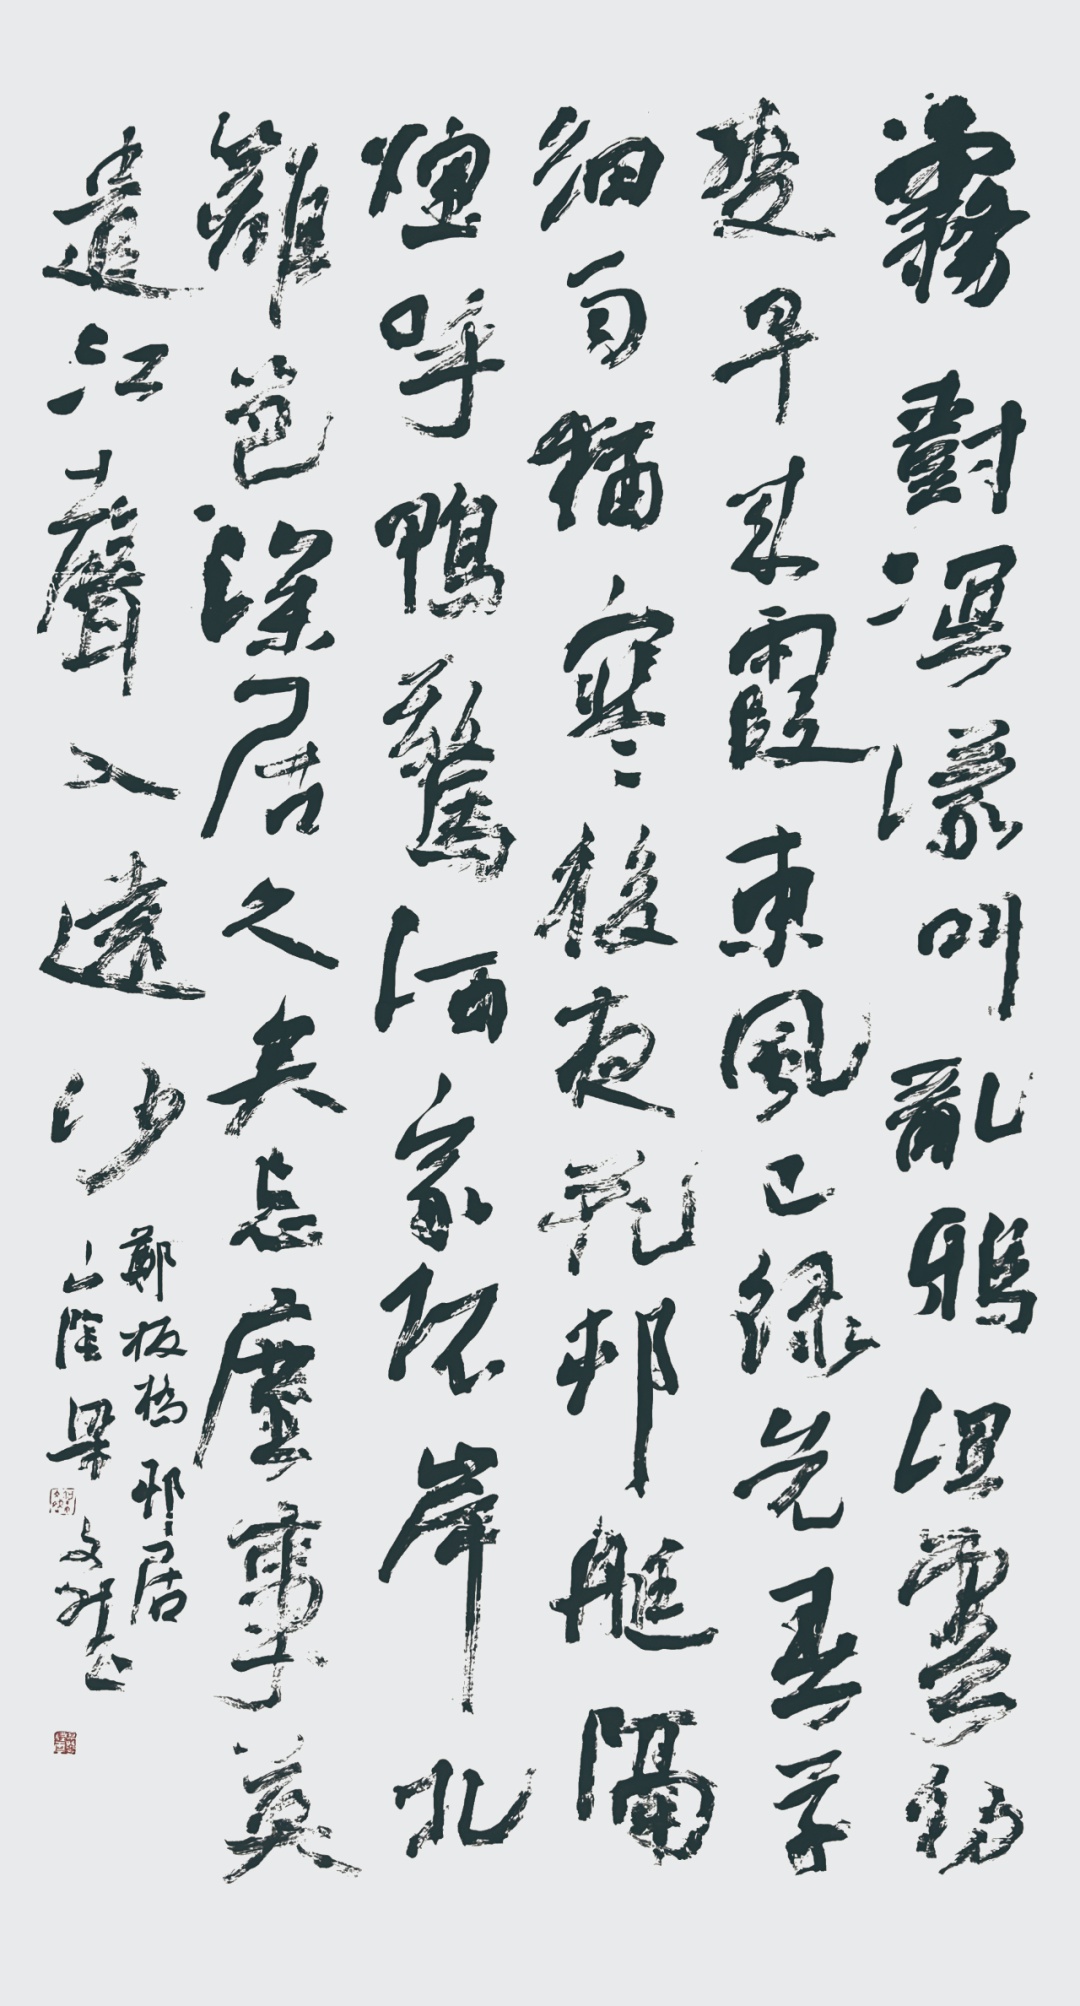 霧對溟濛叫亂鴉濕雲初
變早來霞東風已綠先春草
細雨猶寒後夜花邨艇隔
煙呼鴨鶩酒家依岸扎
籬笆深居久矣忘塵事莫
遣江聲入遠沙
鄭板橋邨居
山陰梁文斌